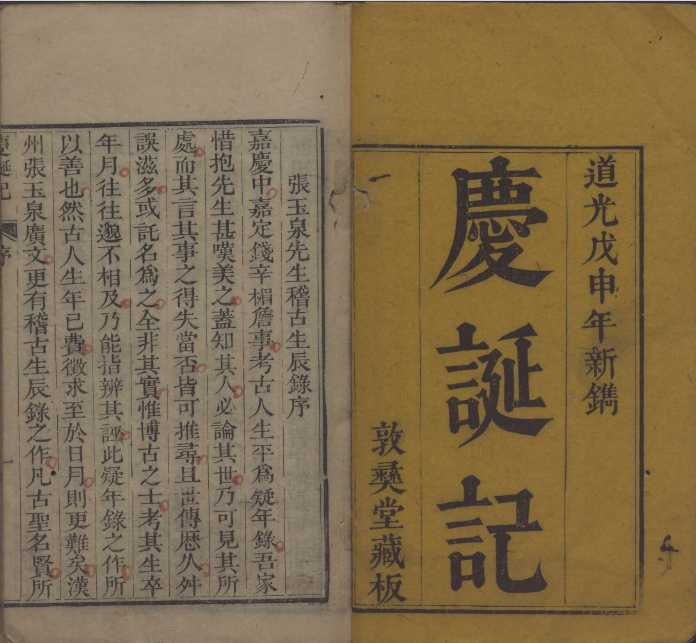 道光戊申年新鐫
慶誕記
敦彜堂藏板
張玉泉先生稽古生辰錄序
嘉慶中嘉定錢辛楣詹事考古人生平為疑年錄吾家
惜抱先生甚嘆美之蓋知其人必論其世乃可見其所
處而其言其事之得失當否皆可推尋且世傳歴久舛
誤滋多或託名為之全非其實惟博古之士考其生卒
年月往往邈不相及乃能指辨其誣此疑年錄之作所
以善也然古人生年已費徵求至於日月則更難矣漢
州張玉泉廣文更有稽古生辰錄之作凡古聖名賢所
慶誕記
序
一